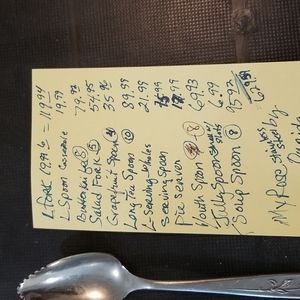 L FORK 19.99 6 = 119.94
L Spoon Casserole 19.99
Butter knife 8 79.92
Salad Fork 5 54.95
Grapefruit Spoon 4 35.96
Long Tea Spoon 10 89.99
L-Serving w/holes 21.99
Serving Spoon
Pie Server
Youth Spoon 8 69.93
Jelly Spoon 6.99
Soup Spoon 8 95.92
My Rose stainless